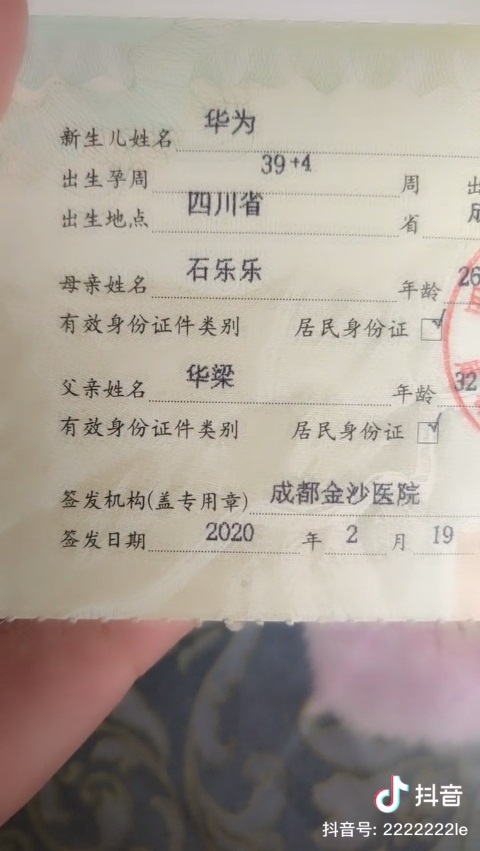 新生儿姓名 华为
出生孕周 39+4 周
出生地点 四川省 省
母亲姓名 石乐乐 年龄 26
有效身份证件类别 居民身份证
父亲姓名 华梁 年龄 32
有效身份证件类别 居民身份证
签发机构(盖专用章) 成都金沙医院
签发日期 2020 年 2 月 19
抖音
抖音号: 2222222le